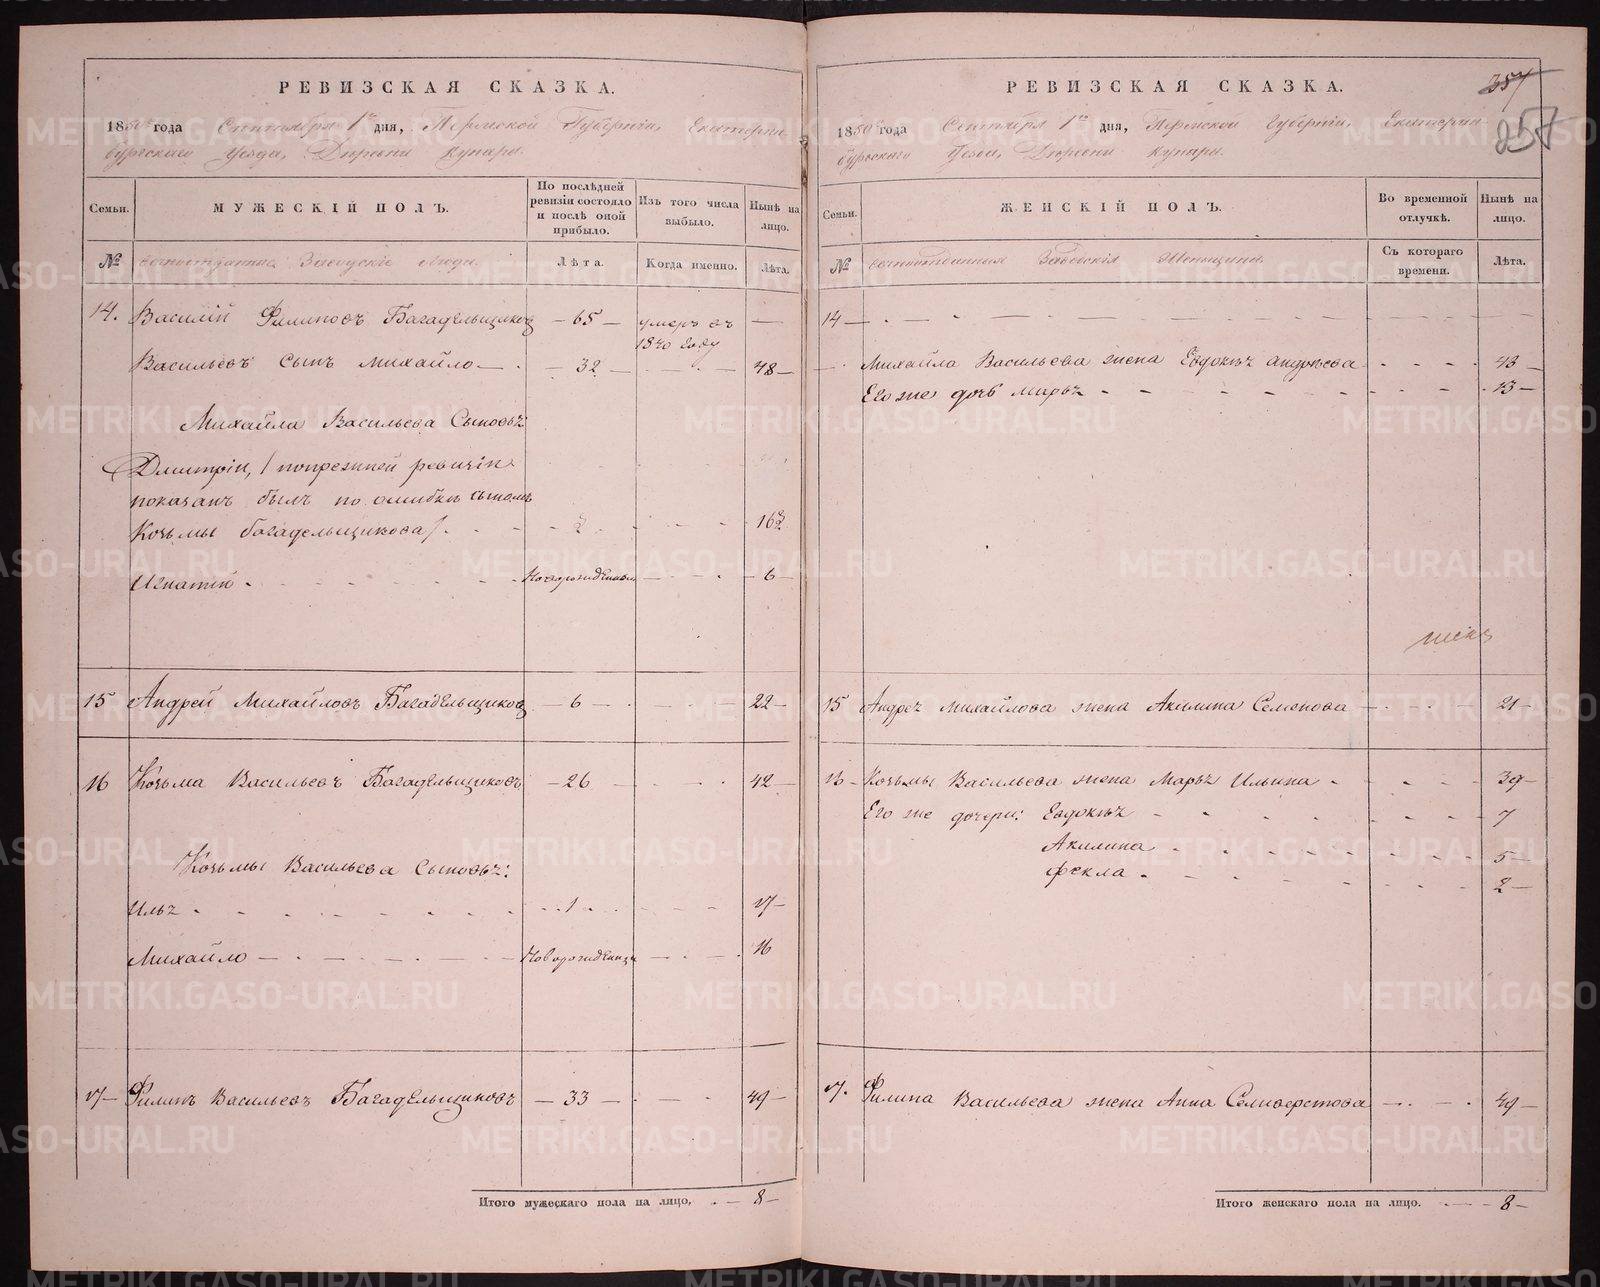 РЕВИЗСКАЯ СКАЗКА.
1850 года Сентября 1го дня, Пермской Губернiи, Екатерин
бургскаго Уѣзда, Деревни Кунары.
Семьи.
МУЖЕСКIЙ ПОЛЪ.
По послѣдней ревизiи состояло и послѣ оной прибыло.
Изъ того числа выбыло.
Нынѣ на лицо.
№
Заводскiе Люди.
Лѣта.
Когда именно.
Лѣта.
14. Василiй Филиповъ Багадельщиковъ — 65 — умеръ въ 1840 году —
Васильевъ сынъ Михайло — 32 — 48 —
Михайла Васильева Сыновья:
Дмитрiй, /попрежней ревизiи
показанъ былъ по ошибкѣ сыномъ
Козьмы багадельщикова/. 2 16½
Игнатiй Новорожденный 6 —
15 Андрей Михайловъ Багадельщиковъ — 6 — 22 —
16 Козьма Васильевъ Багадельщиковъ — 26 — 42 —
Козьмы Васильева Сыновья:
Илья 1 17 —
Михайло Новорожденный 16
17 — Филипъ Васильевъ Багадельщиковъ — 33 — 49 —
Итого мужескаго пола на лицо. — 8 —
357
257
РЕВИЗСКАЯ СКАЗКА.
1850 года Сентября 1го дня, Пермской Губернiи, Екатерин
бургскаго Уѣзда, Деревни Кунары.
Семьи.
ЖЕНСКIЙ ПОЛЪ.
Во временной отлучкѣ.
Нынѣ на лицо.
№
Заводскiя Женщины
Съ котораго времени.
Лѣта.
14 —
Михайла Васильева жена Евдокья Андреева 43 —
Его же дочь Марья 13 —
15 Андрея Михайлова жена Акилина Семенова 21 —
Козьмы Васильева жена Марья Ильина 39 —
Его же дочери: Евдокья 7
Акилина 5 —
Фекла 2 —
17. Филипа Васильева жена Анна Селиверстова 49 —
Итого женскаго пола на лицо. — 8 —
METRIKI.GASO-URAL.RU